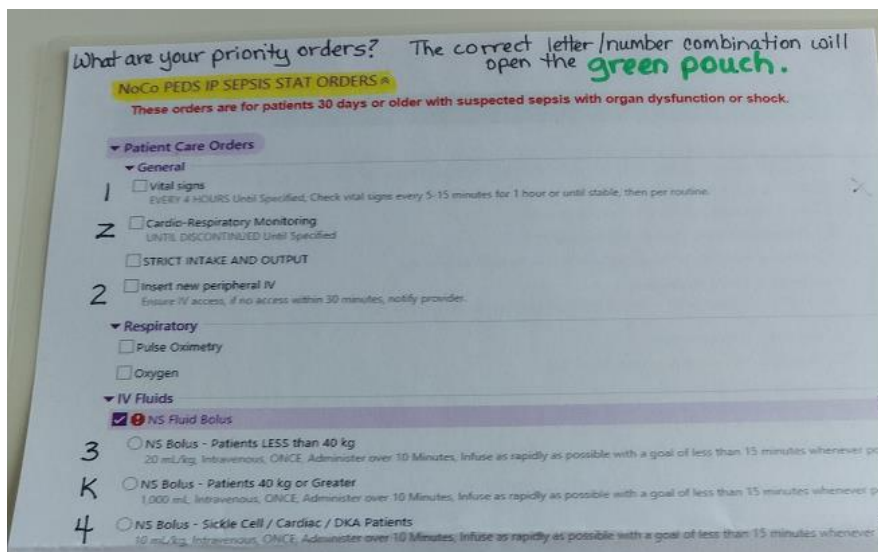 What are your priority orders? The correct letter/number combination will
open the green pouch.
NoCo PEDS IP SEPSIS STAT ORDERS
These orders are for patients 30 days or older with suspected sepsis with organ dysfunction or shock.
Patient Care Orders
General
1 Vital signs
EVERY 4 HOURS Until Specified, Check vital signs every 5-15 minutes for 1 hour or until stable, then per routine.
Z Cardio-Respiratory Monitoring
UNTIL DISCONTINUED Until Specified
STRICT INTAKE AND OUTPUT
2 Insert new peripheral IV
Ensure IV access, if no access within 30 minutes, notify provider.
Respiratory
Pulse Oximetry
Oxygen
IV Fluids
NS Fluid Bolus
3 NS Bolus - Patients LESS than 40 kg
20 mL/kg, Intravenous, ONCE, Administer over 10 Minutes, Infuse as rapidly as possible with a goal of less than 15 minutes whenever
K NS Bolus - Patients 40 kg or Greater
1,000 mL, Intravenous, ONCE, Administer over 10 Minutes, Infuse as rapidly as possible with a goal of less than 15 minutes whenever
4 NS Bolus - Sickle Cell / Cardiac / DKA Patients
10 mL/kg, Intravenous, ONCE, Administer over 10 Minutes, Infuse as rapidly as possible with a goal of less than 15 minutes whenever